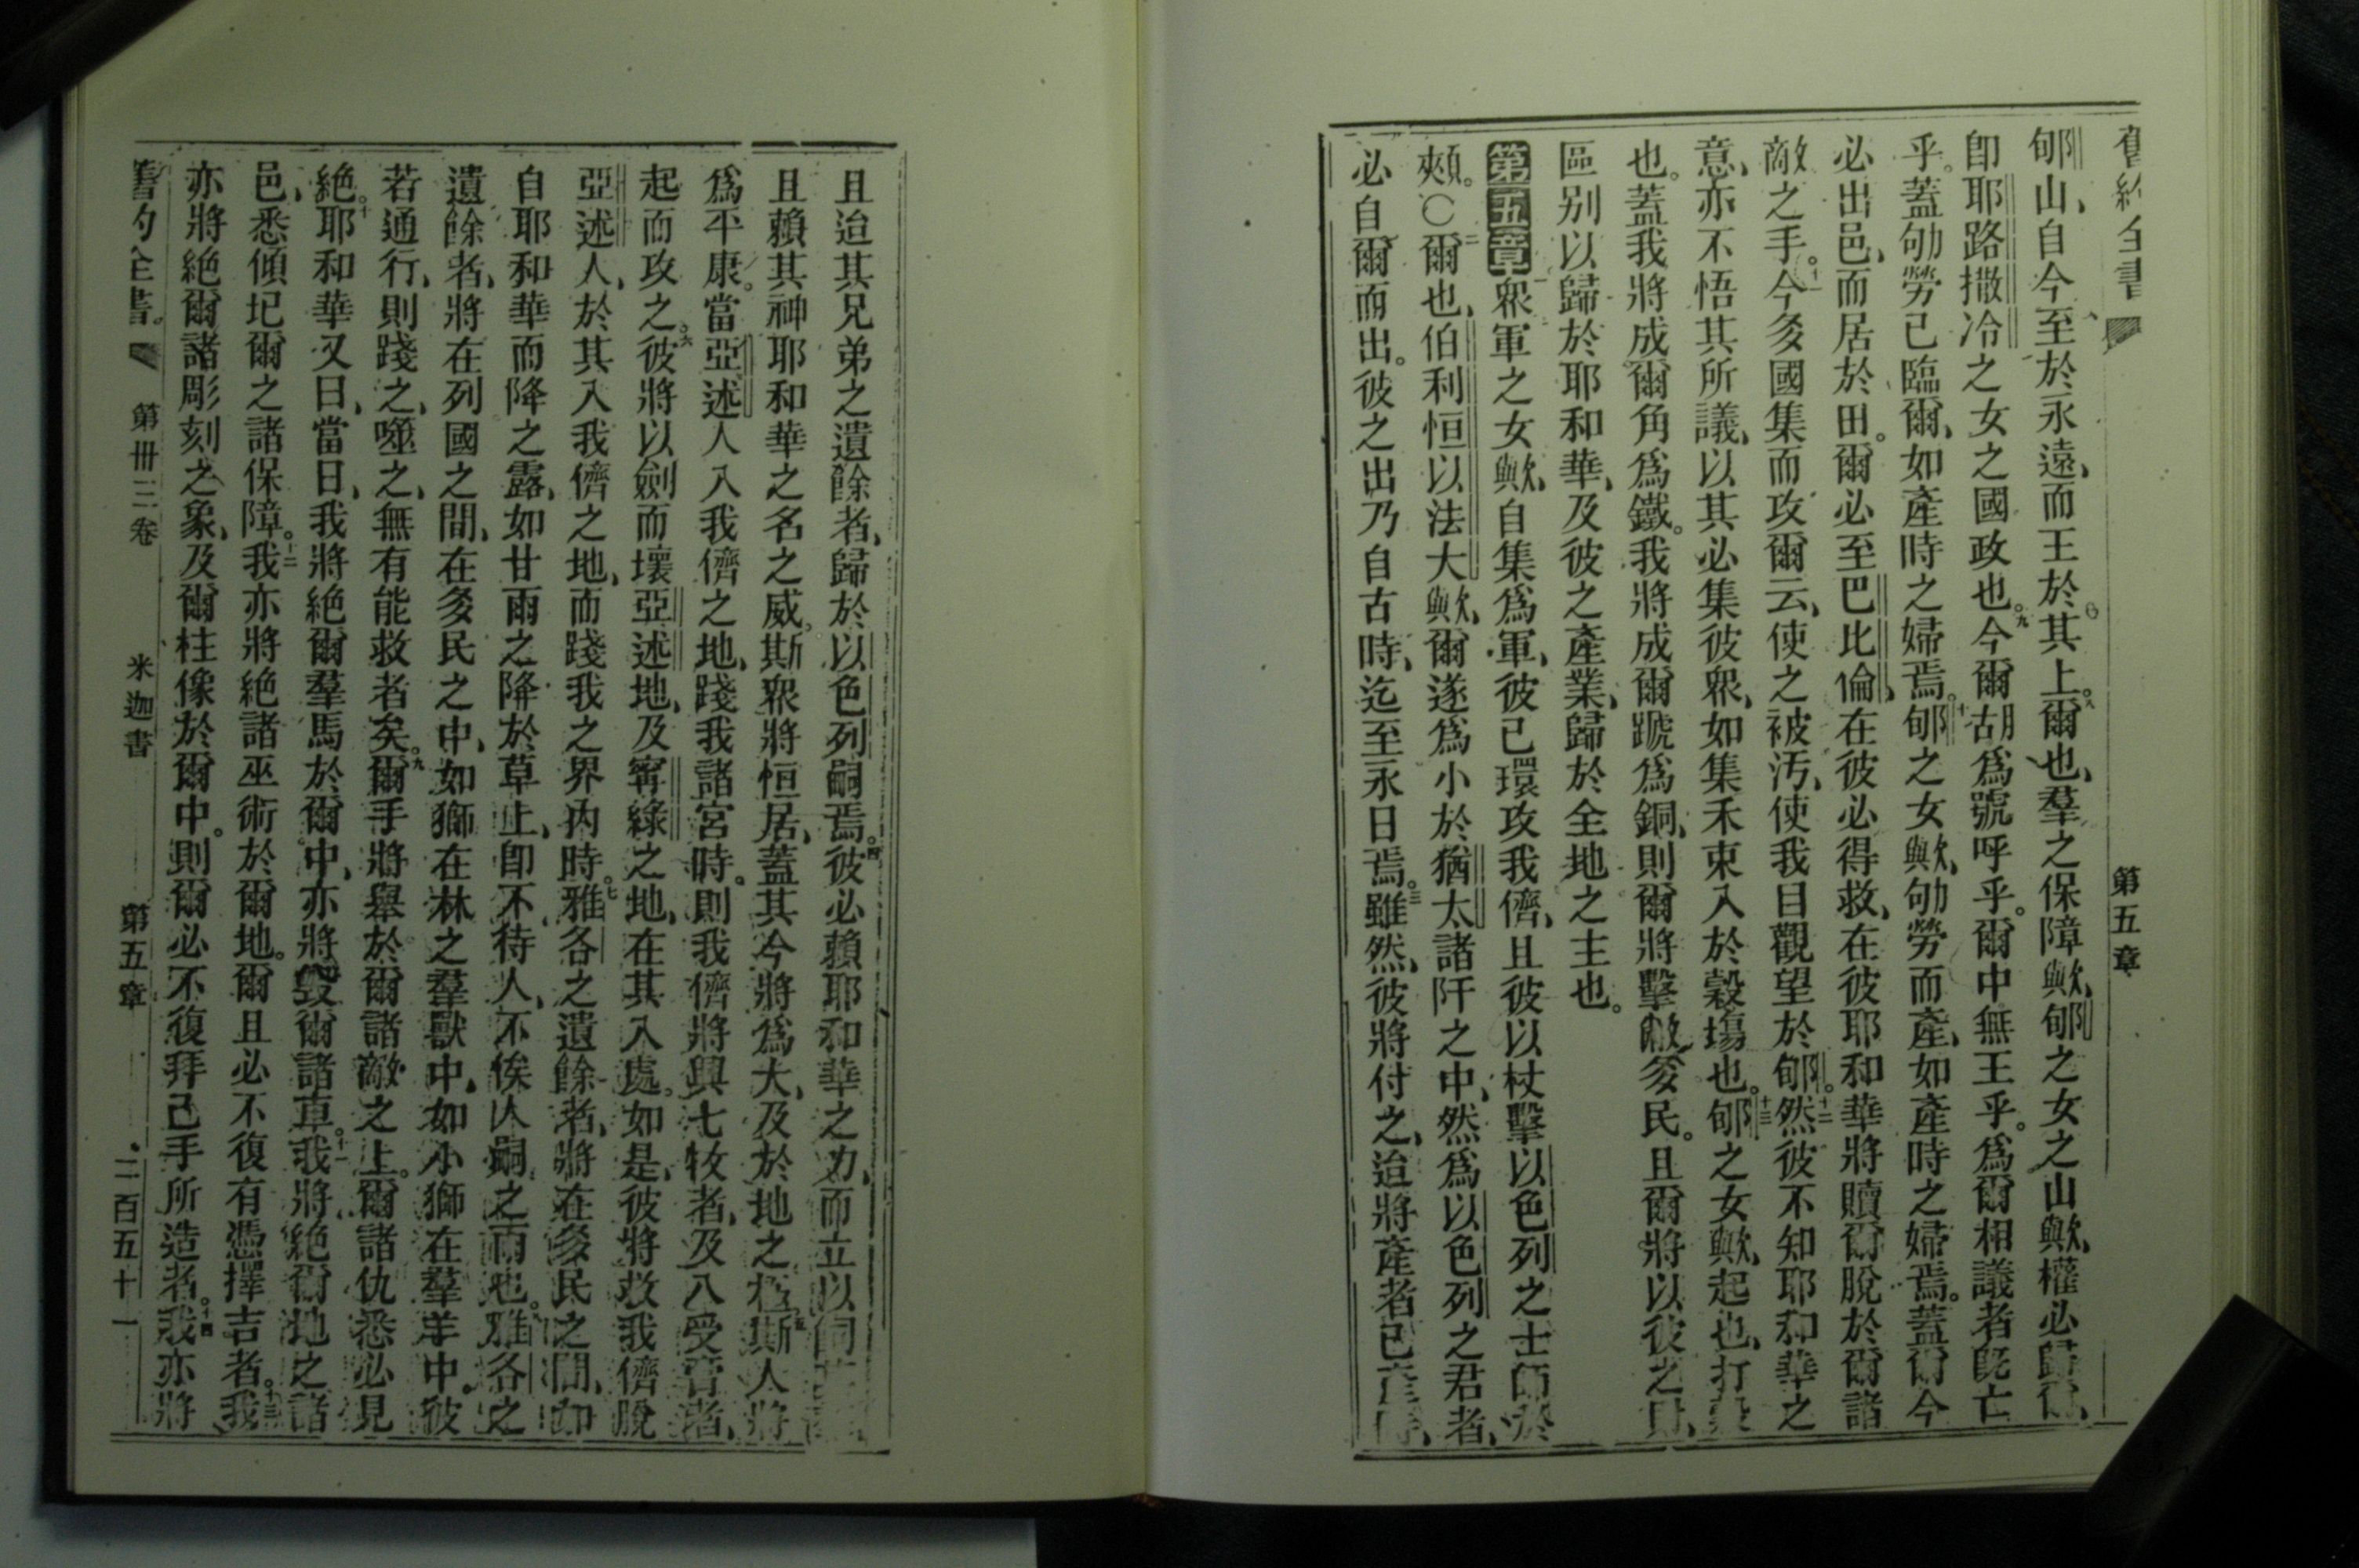 舊約全書 第五章
郇山、自今至於永遠、而王於其上。八爾也、羣之保障歟、郇之女之山歟、權必歸
卽耶路撒冷之女之國政也。九今爾胡爲號呼乎。爾中無王乎。爲爾相議者旣亡
乎。蓋劬勞已臨爾、如產時之婦焉。十郇之女歟、劬勞而產、如產時之婦焉。蓋爾今
必出邑、而居於田。爾必至巴比倫、在彼必得救、在彼耶和華將贖爾脫於爾諸
敵之手。十一今多國集而攻爾云、使之被汚、使我目觀望於郇。十二然彼不知耶和華之
意、亦不悟其所議、以其必集彼衆、如集禾束入於穀塲也。十三郇之女歟、起也、打
也。蓋我將成爾角爲鐵。我將成爾蹏爲銅、則爾將擊敝多民。且爾將以彼之
區別以歸於耶和華、及彼之產業、歸於全地之主也。
第五章 一衆軍之女歟、自集爲軍、彼已環攻我儕、且彼以杖擊以色列之士師於
頰。〇二爾也、伯利恒以法大歟、爾遂爲小於猶太諸阡之中、然爲以色列之君者、
必自爾而出。彼之出乃自古時、迄至永日焉。三雖然、彼將付之、迨將產者已產時、
且迨其兄弟之遺餘者、歸於以色列嗣焉。四彼必賴耶和華之力、而立以伺
且賴其神耶和華之名之威。斯衆將恒居、蓋其今將爲大、及於地之極。五斯人將
爲平康。當亞述人入我儕之地、踐我諸宮時。則我儕將興七牧者、及八受膏者、
起而攻之。六彼將以劍而壞亞述地、及寗綠之地、在其入處。如是、彼將救我儕脫
亞述人、於其入我儕之地、而踐我之界內時。七雅各之遺餘者、將在多民之間、如
自耶和華而降之露、如甘雨之降於草上、卽不待人、不俟人嗣之雨也。雅各之
遺餘者、將在列國之間、在多民之中、如獅在林之羣獸中、如小獅在羣羊中。彼
若通行、則踐之、噬之、無有能救者矣。九爾手將舉於爾諸敵之上。爾諸仇悉必見
絕。十耶和華又曰、當日、我將絕爾羣馬於爾中、亦將毀爾諸車。十一我將絕爾地之諸
邑、悉傾圮爾之諸保障。十二我亦將絕諸巫術於爾地。爾且必不復有憑擇吉者。十三我
亦將絕爾諸彫刻之象、及爾柱像於爾中。則爾必不復拜己手所造者。十四我亦將
舊約全書 第卅三卷 米迦書 第五章 二百五十一